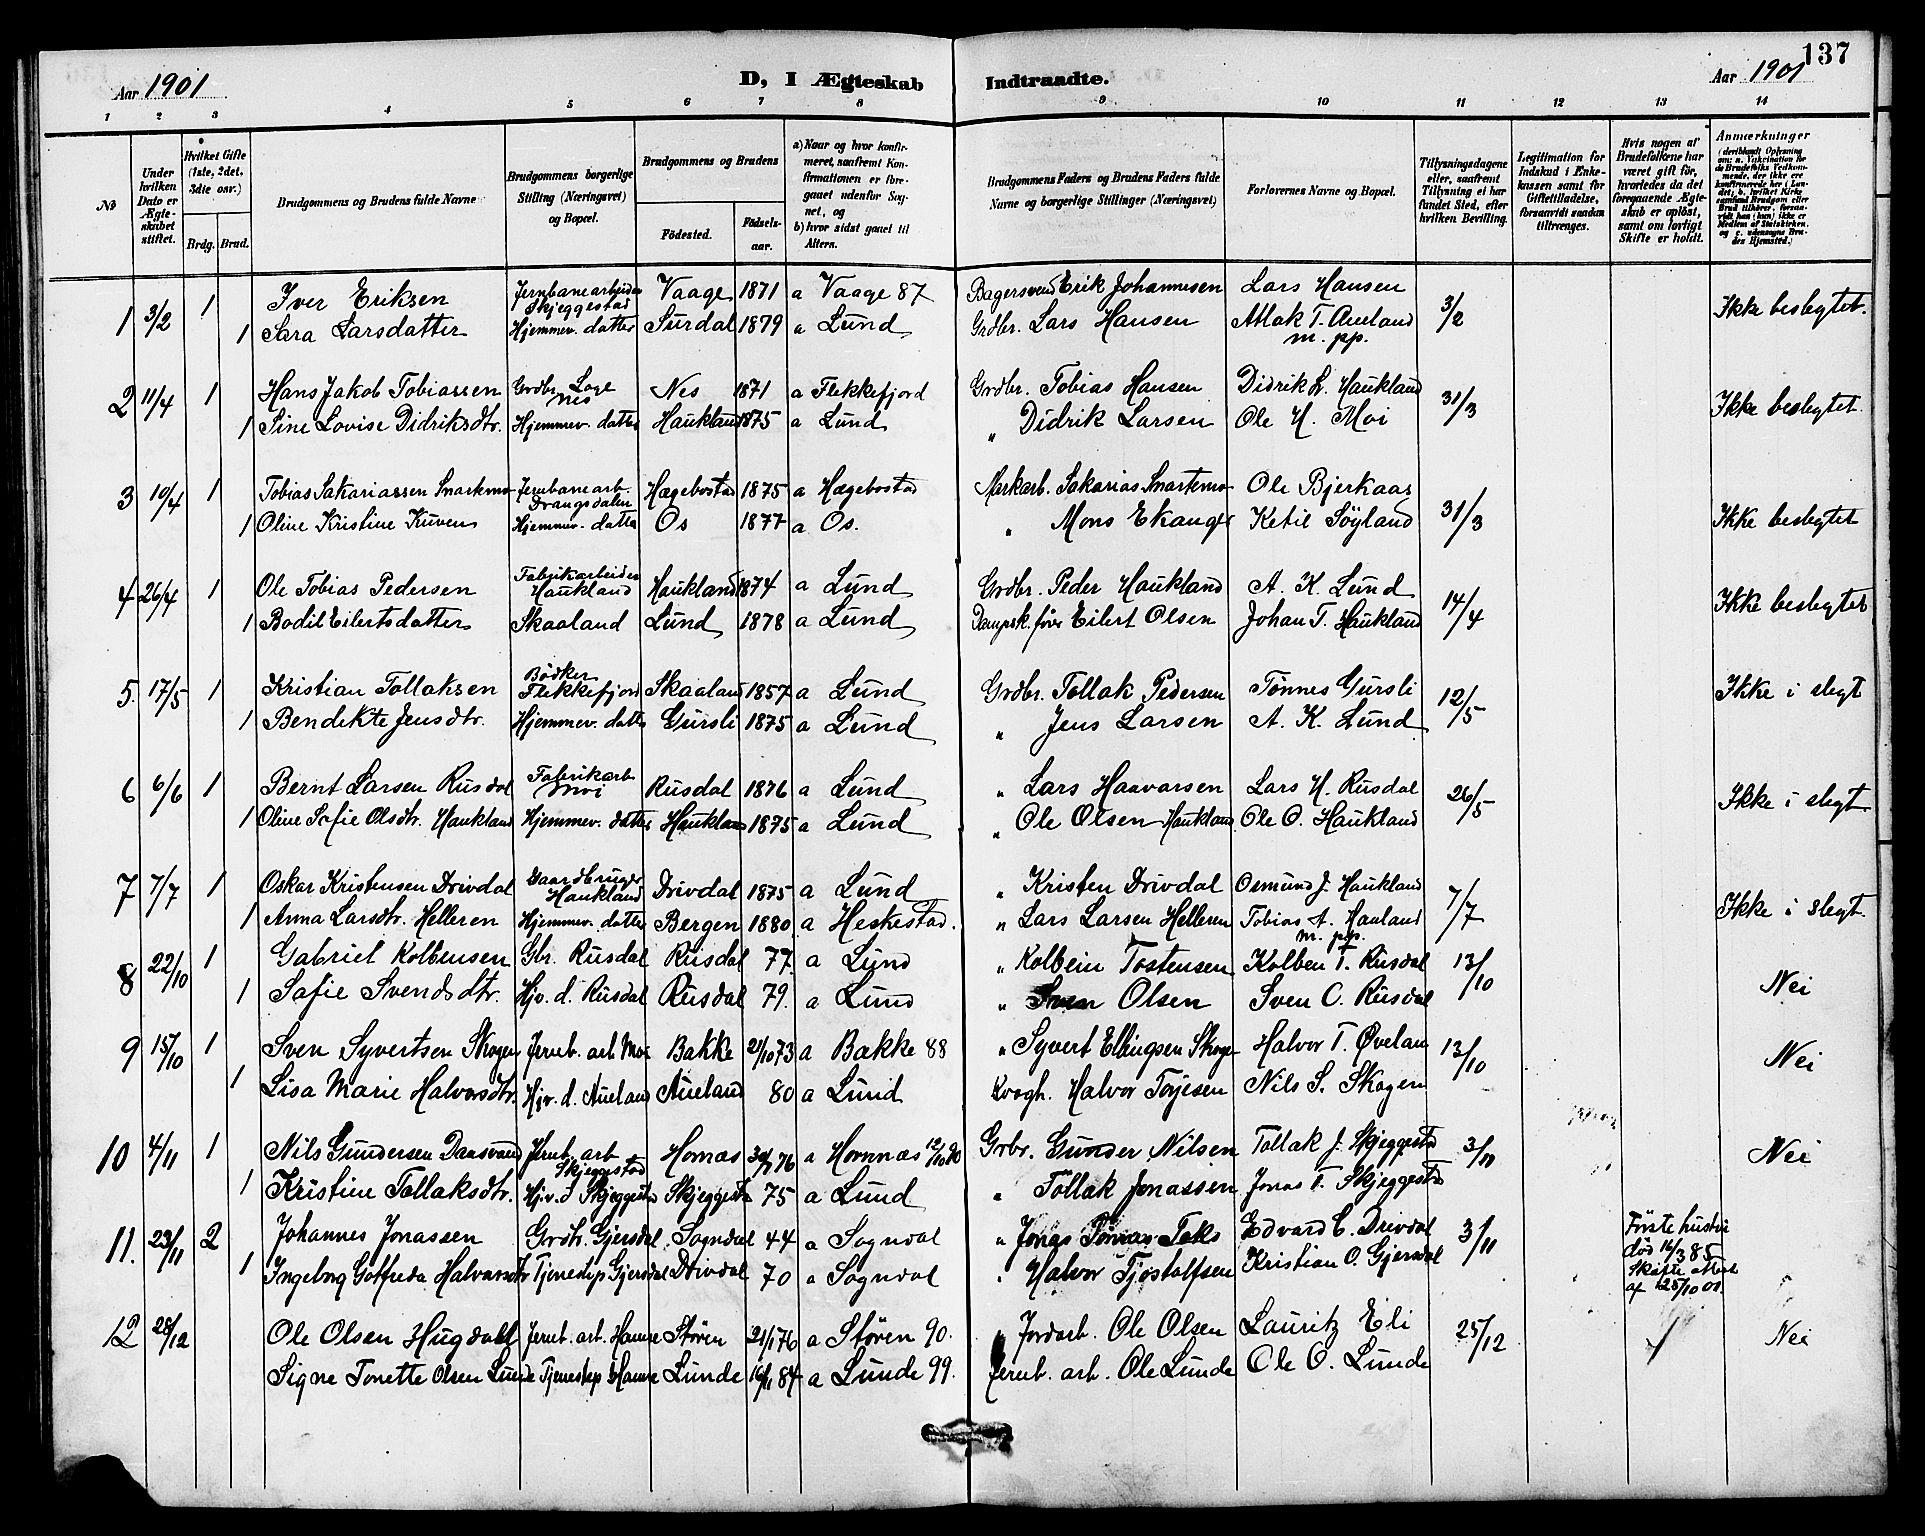 137
Aar 1901 D, I Ægteskab Indtraadte. Aar 1901
1 2 3 4 5 6 7 8 9 10 11 12 13 14
No
Under hvilken Dato er Ægteskabet stiftet.
Hvilket Gifte (1ste, 2det, 3die osv.)
Brdg. Brud.
Brudgommens og Brudens fulde Navne
Brudgommens borgerlige Stilling (Næringsvei) og Bopæl.
Brudgommens og Brudens
Fødested. Fødselsaar.
a) Naar og hvor konfirmeret, saafremt Konfirmationen er foregaaet udenfor Sognet, og
b) hvor sidst gaaet til Alters.
Brudgommens Faders og Brudens Faders fulde Navne og borgerlige Stillinger (Næringsvei)
Forlovernes Navne og Bopæl.
Tillysningsdagene eller, saafremt Tillysning ei har fundet Sted, efter hvilken Bevilling.
Legitimation for Indskud i Enkekassen samt for Giftetilladelse, forsaavidt saadan tiltrænges.
Hvis nogen af Brudefolkene har været gift før, hvorledes da det foregaaende Ægteskab er opløst, samt om lovligt Skifte er holdt.
Anmærkninger
1 3/2 1 Iver Eriksen Jernbanearbeider Skjeggestad Vaage 1871 a Vaage 87 Bagersvend Erik Johannesen Lars Hansen 3/2 Ikke beslegtet.
1 Sara Larsdatter Hjemmev. datter Surdal 1879 a Lund Grdbr. Lars Hansen Atlak T. Aueland m. pp.
2 11/4 1 Hans Jakob Tobiassen Grdbr. Loge Nes Nes 1871 a Flekkefjord Grdbr. Tobias Hansen Didrik L. Haukland 31/3 Ikke beslegtet
1 Sine Lovise Didriksdtr. Hjemmev. datter Haukland 1875 a Lund " Didrik Larsen Ole H. Moi
3 10/4 1 Tobias Sakariassen Snartemo Jernbanearb. Drangsdalen Hægebostad 1875 a Hægebostad Markarb. Sakarias Snartemo Ole Bjerkaas 31/3 Ikke beslegtet
1 Oline Kristine Kuven Hjemmev. datter Os 1877 a Os. " Mons Ekanger Ketil Söyland
4 26/4 1 Ole Tobias Pedersen Fabrikarbeider Haukland Haukland 1874 a Lund Grdbr. Peder Haukland A. K. Lund 14/4 Ikke beslegtet
1 Bodil Eilertsdatter Skaaland Lund 1878 a Lund Dampsk. fører Eilert Olsen Johan T. Haukland
5. 17/5 1 Kristian Tollaksen Bødker Flekkefjord Skaaland 1857 a Lund Grdbr. Tollak Pedersen Tönnes Gursli 12/5 Ikke i slegt
1 Bendikte Jensdtr. Hjemmev. datter Gursli 1875 a Lund " Jens Larsen A. K. Lund
6 6/6 1 Bernt Larsen Rusdal Fabrikarb Moi Rusdal 1876 a Lund " Lars Haavarsen Lars H. Rusdal 26/5 Ikke i slegt
1 Oline Sofie Olsdtr. Haukland Hjemmev. datter Haukland 1875 a Lund " Ole Olsen Haukland Ole O. Haukland
7 7/7 1 Oskar Kristensen Drivdal Gaardbruger Haukland Drivdal 1875 a Lund " Kristen Drivdal Osmund J. Haukland 7/7 Ikke i slegt
1 Anna Larsdtr. Helleren Hjemmev. datter Bergen 1880 a Heskestad. " Lars Larsen Helleren Tobias A. Hauland m. pp.
8 22/10 1 Gabriel Kolbensen Gbr. Rusdal Rusdal 77. a Lund " Kolbein Tostensen Kolben T. Rusdal 13/10 Nei
1 Safie Svendsdtr. Hjv. d. Rusdal Rusdal 79. a Lund " Sven Olsen Sven O. Rusdal
9 15/10 1 Sven Syvertsen Skogen Jernb. arb Moi Bakke 21/10 73 a Bakke 88 " Syvert Ellingsen Skogen Halvor T. Øveland 13/10 Nei
1 Lisa Marie Halvorsdtr. Hjv. d. Aueland Aueland 80 a Lund Halvor Torjesen Nils S. Skogen
10 4/11 1 Nils Gundersen Daasvand Jernb. arb Skjeggestad Hornæs 76 a Hornnæs 12/10 90 Grbr. Gunder Nilsen Tollak J. Skjeggestad Nei
1 Kristine Tollaksdtr. Hjv. d Skjeggestd Skjeggestd 75 a Lund " Tollak Jonassen Jonas T. Skjeggestd
11. 23/11 2 Johannes Jonassen Grdbr. Gjersdal Sogndal 44 a Sogndal " Jonas Tomas Edvard C. Drivdal 3/11 Første hustru död 16/3 85 Skifte attest af 25/10 01.
1 Ingeborg Gotfreda Halvorsdtr Tjenestep Gjersdal Drivdal 70 a Sogndal " Halvor Tjostolfsen Kristian O. Gjersdal
12 28/12 Ole Olsen Hugdahl Jernb. arb. Hamre Støren 21/1 76 a Støren 90. " Jordarb. Ole Olsen Lauritz Eli 25/12 Nei
Signe Tonette Olsen Lunde Tjenestep Hamre Lunde 16/11 84 a Lunde 99. Jernb. arb. Ole Lunde Ole O. Lunde